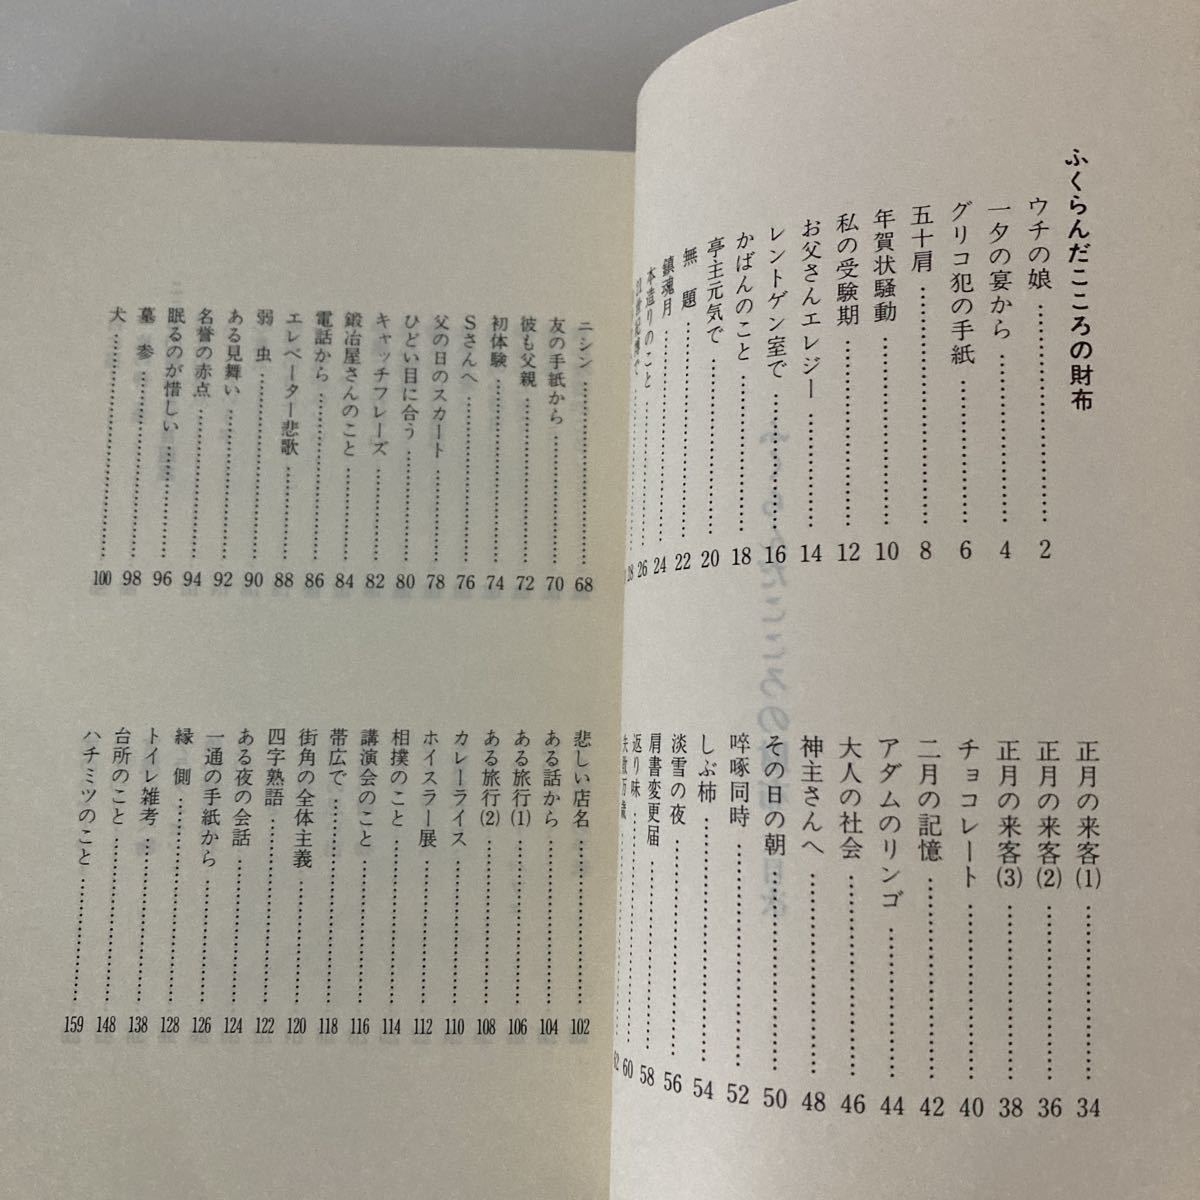 ふくらんだこころの財布
ウチの娘……2
一夕の宴から……4
グリコ犯の手紙……6
五十肩……8
年賀状騒動……10
私の受験期……12
お父さんエレジー……14
レントゲン室で……16
かばんのこと……18
亭主元気で……20
無題……22
鎮魂月……24
本造りのこと……26
28
正月の来客(1)……34
正月の来客(2)……36
正月の来客(3)……38
チョコレート……40
二月の記憶……42
アダムのリンゴ……44
大人の社会……46
神主さんへ……48
その日の朝……50
啐啄同時……52
しぶ柿……54
淡雪の夜……56
肩書変更届……58
返り味……60
62
ニシン……68
友の手紙から……70
彼も父親……72
初体験……74
Sさんへ……76
父の日のスカート……78
ひどい目に合う……80
キャッチフレーズ……82
鍛冶屋さんのこと……84
電話から……86
エレベーター悲歌……88
弱虫……90
ある見舞い……92
名誉の赤点……94
眠るのが惜しい……96
墓参……98
犬……100
悲しい店名……102
ある話から……104
ある旅行(1)……106
ある旅行(2)……108
カレーライス……110
ホイスラー展……112
相撲のこと……114
講演会のこと……116
帯広で……118
街角の全体主義……120
四字熟語……122
ある夜の会話……124
一通の手紙から……126
縁側……128
トイレ雑考……138
台所のこと……148
ハチミツのこと……159